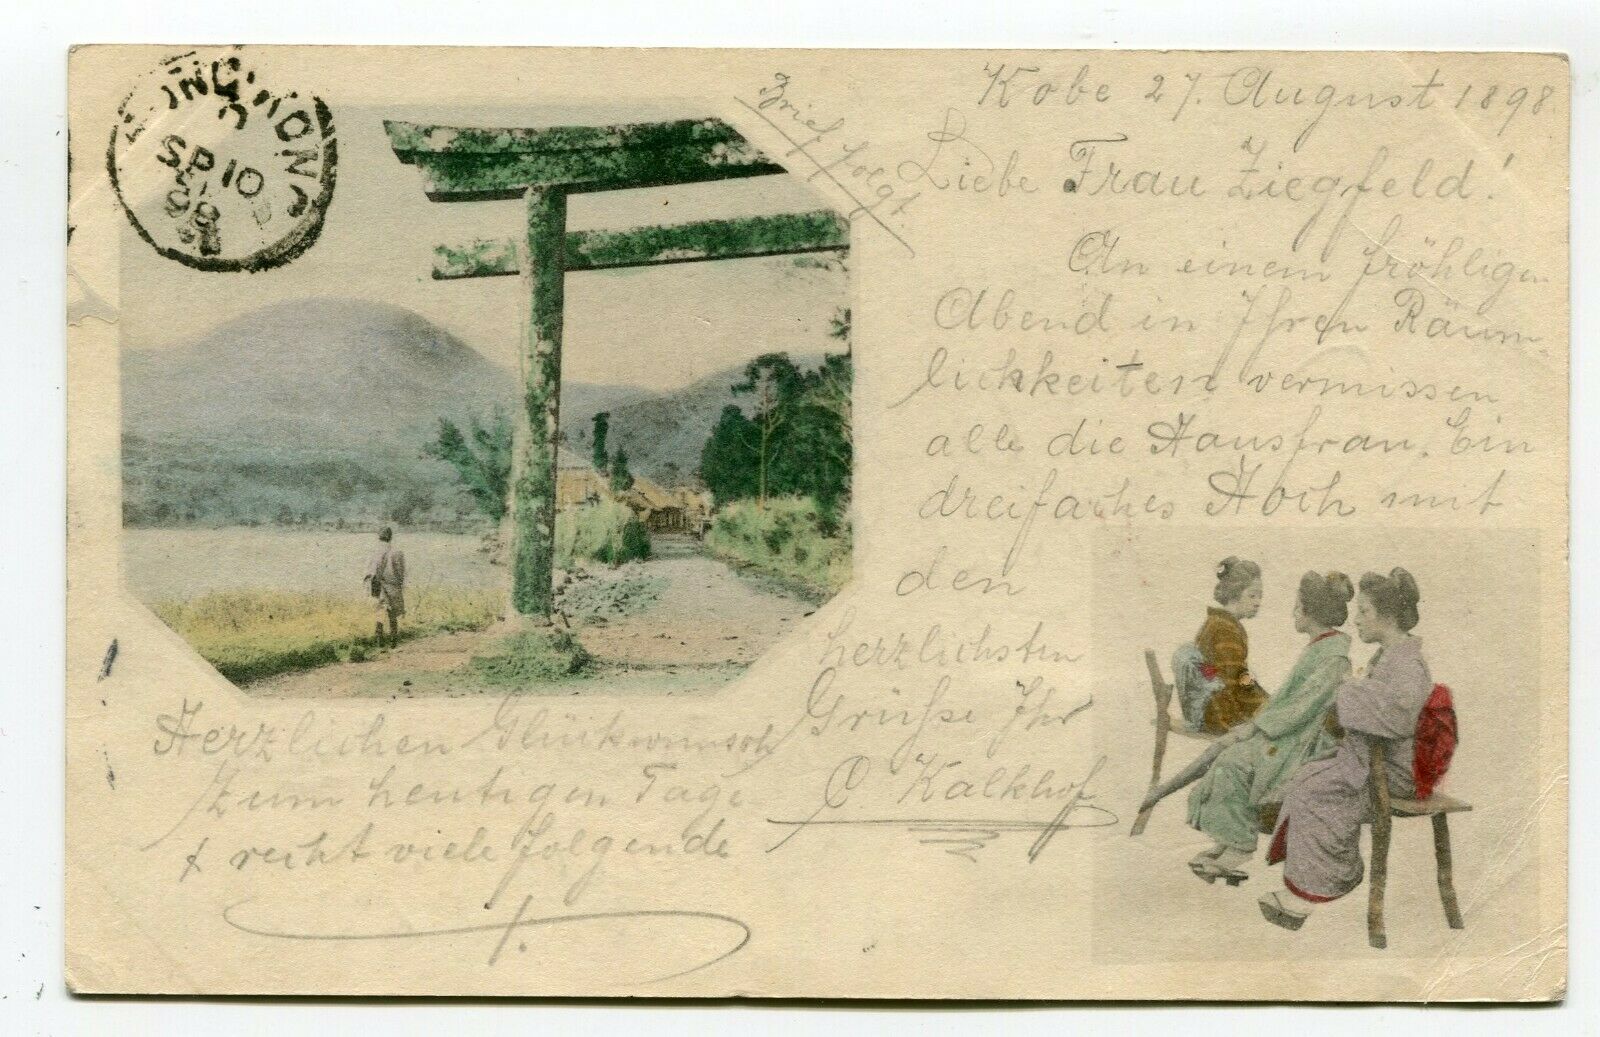 HONG KONG
D
SP 10
98
Brief folgt.
Kobe 27. August 1898
Liebe Frau Ziegfeld!
An einem fröhligen
Abend in Ihren Räum-
lichkeiten vermissen
alle die Hausfrau. Ein
dreifaches Hoch mit
den
herzlichsten
Grüße Ihr
C. Kalkhof
Herzlichen Glückwunsch
zum heutigen Tage
& recht viele folgende